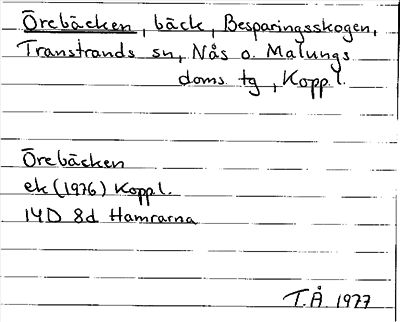 Örebäcken, bäck, Besparingsskogen,
Transtrands sn, Nås o. Malungs
doms. tg, Koppl.
Örebäcken
ek (1976) Koppl.
14D 8d Hamrarna
T.Å. 1977